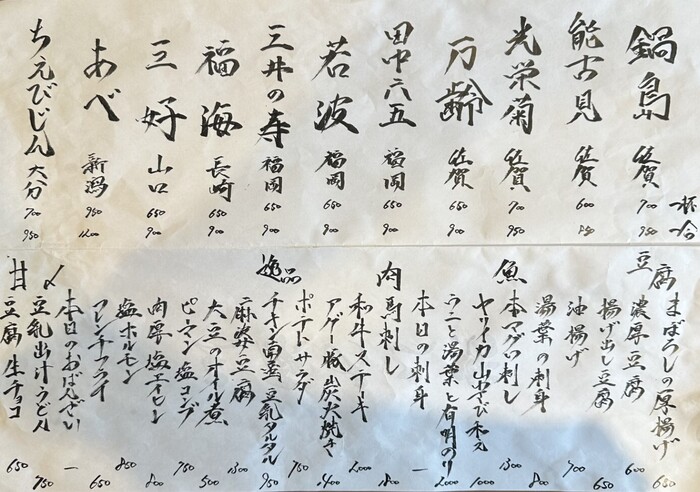 一杯 一合
鍋島 佐賀 700 950
能古見 佐賀 600 850
光栄菊 佐賀 700 950
万齢 佐賀 650 900
田中六五 福岡 650 900
若波 福岡 650 900
三井の寿 福岡 650 900
福海 長崎 650 900
三好 山口 650 900
あべ 新潟 950 1200
ちえびじん 大分 700 950
豆腐
まぼろしの厚揚げ 650
濃厚豆腐 600
揚げ出し豆腐 650
油揚げ 700
湯葉の刺身 800
魚
本マグロ刺し 1300
ヤリイカ山わさび和え 1000
ウニと湯葉と有明のり 2000
本日の刺身 ー
肉
馬刺し 1800
和牛ステーキ 2000
アグー豚炭火焼き 1400
ポテトサラダ 750
逸品
チキン南蛮 豆乳タルタル 950
麻婆豆腐 1300
大豆のオイル煮 500
ピーマン塩コンブ 750
肉厚塩エイヒレ 800
塩ホルモン 850
フレンチフライ 650
本日のおばんざい ー
〆
豆乳出汁うどん 750
甘
豆腐生チョコ 650